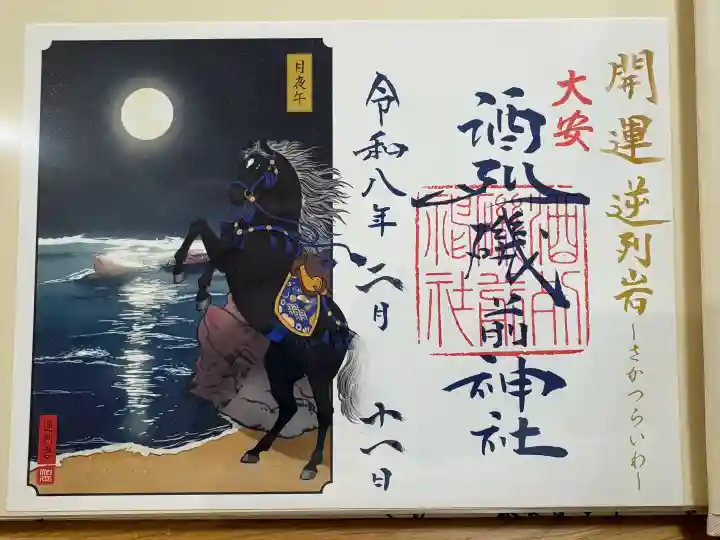 開運 逆列岩 ーさかつらいわー
大安
酒列磯前神社
令和八年 二月 十八日
月夜午
逆列岩